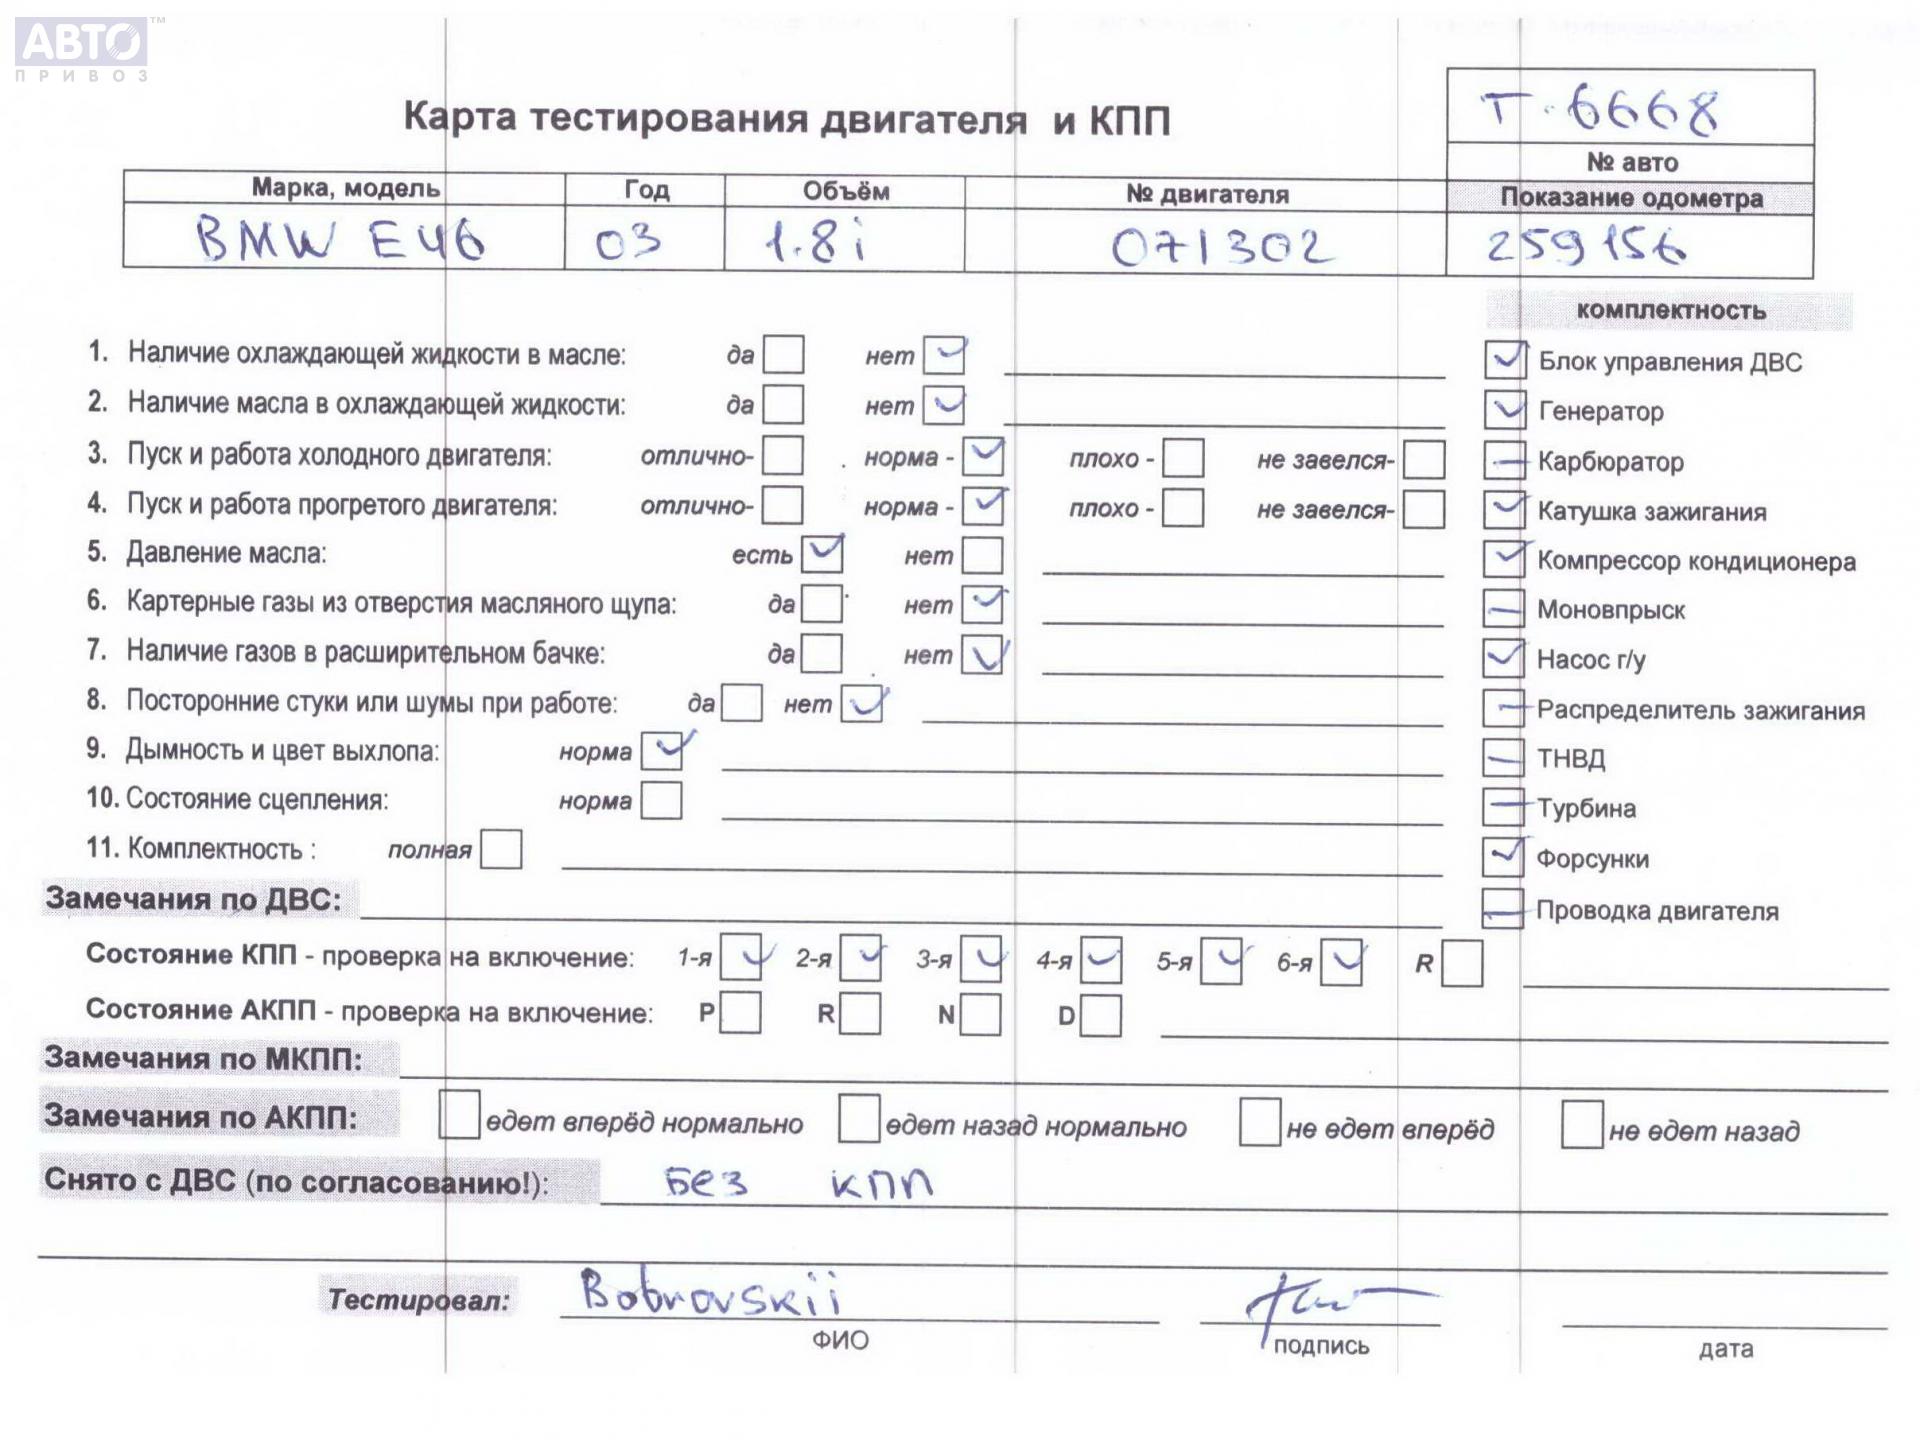 АВТО™
ПРИВОЗ
Т-6668
Карта тестирования двигателя и КПП
№ авто
Марка, модель Год Объём № двигателя Показание одометра
BMW E46 03 1.8i 071302 259156
комплектность
1. Наличие охлаждающей жидкости в масле: да нет ✓ ✓ Блок управления ДВС
2. Наличие масла в охлаждающей жидкости: да нет ✓ ✓ Генератор
3. Пуск и работа холодного двигателя: отлично- норма - ✓ плохо - не завелся- — Карбюратор
4. Пуск и работа прогретого двигателя: отлично- норма - ✓ плохо - не завелся- ✓ Катушка зажигания
5. Давление масла: есть ✓ нет ✓ Компрессор кондиционера
6. Картерные газы из отверстия масляного щупа: да нет ✓ — Моновпрыск
7. Наличие газов в расширительном бачке: да нет ✓ ✓ Насос г/у
8. Посторонние стуки или шумы при работе: да нет ✓ — Распределитель зажигания
9. Дымность и цвет выхлопа: норма ✓ — ТНВД
10. Состояние сцепления: норма — Турбина
11. Комплектность : полная ✓ Форсунки
Замечания по ДВС: — Проводка двигателя
Состояние КПП - проверка на включение: 1-я ✓ 2-я ✓ 3-я ✓ 4-я ✓ 5-я ✓ 6-я ✓ R
Состояние АКПП - проверка на включение: P R N D
Замечания по МКПП:
Замечания по АКПП: едет вперёд нормально едет назад нормально не едет вперёд не едет назад
Снято с ДВС (по согласованию!): Без КПП
Тестировал: Bobrovskii
ФИО подпись дата